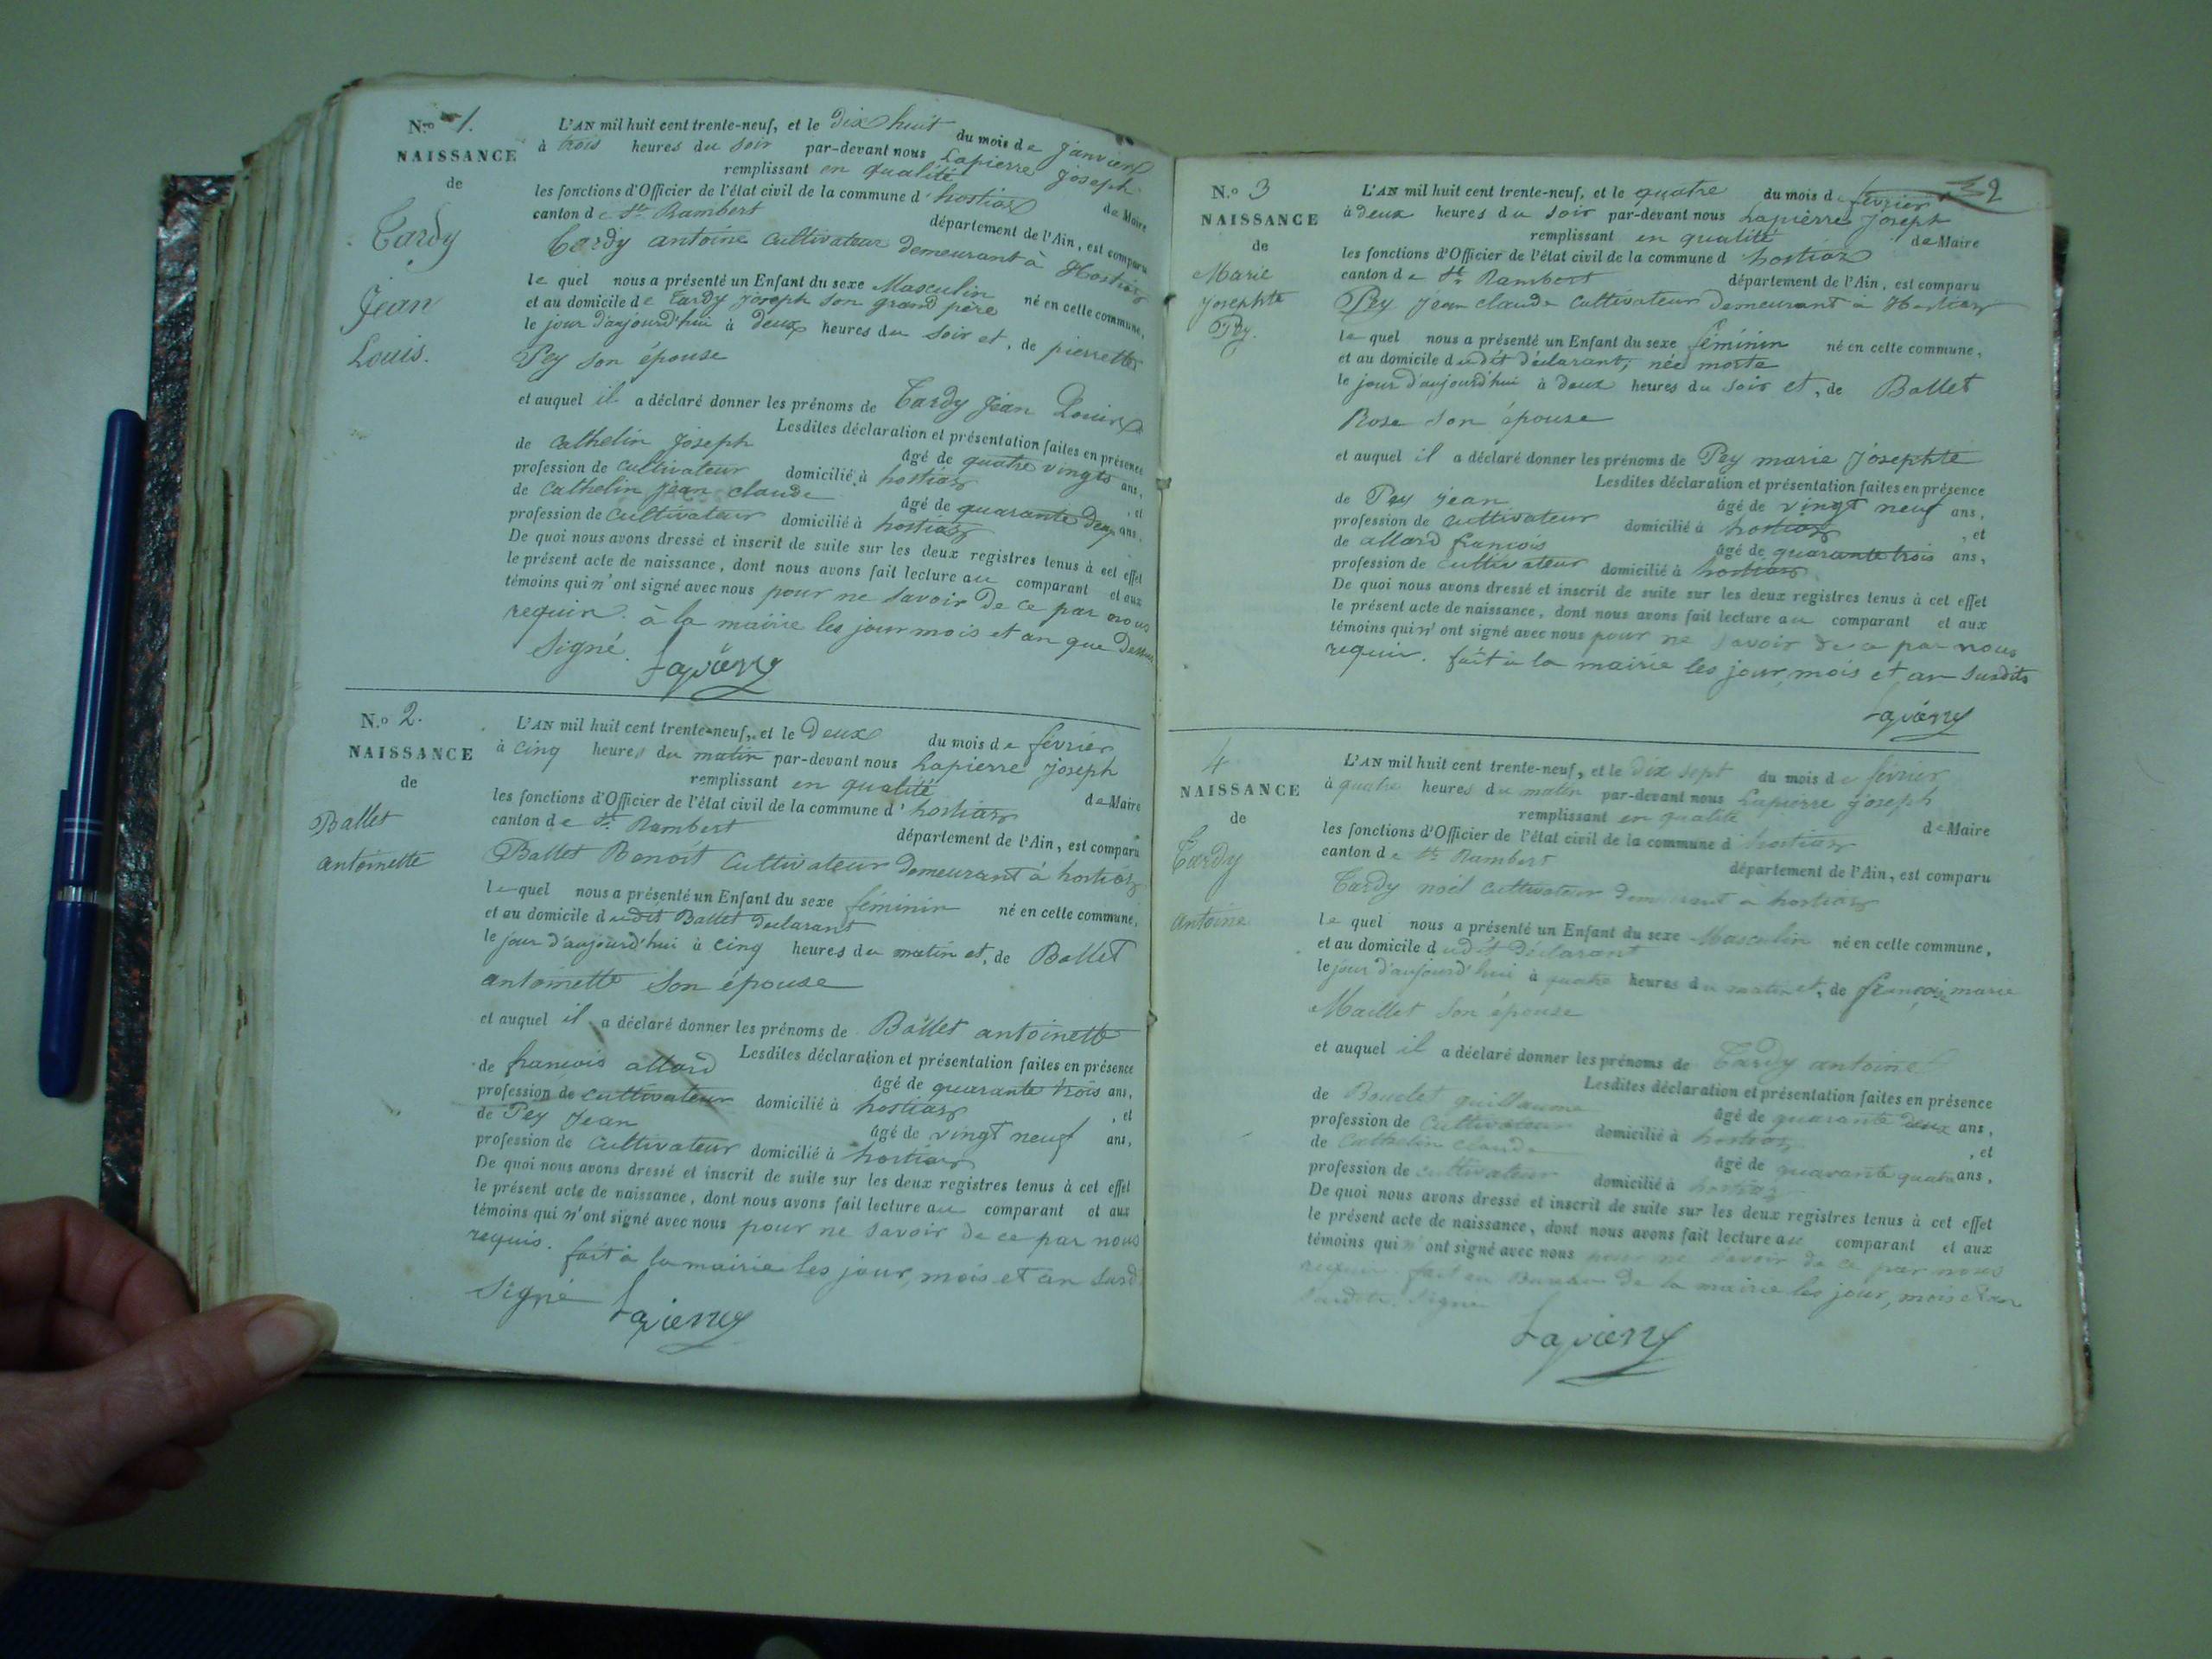 N.ro 1.
NAISSANCE
de
Tardy
Jean
Louis.
L'AN mil huit cent trente-neuf, et le dix huit du mois de janvier
à trois heures du soir par-devant nous Lapierre joseph
remplissant en qualité de Maire
les fonctions d'Officier de l'état civil de la commune d'hostiaz
canton de St. Rambert département de l'Ain, est comparu
Tardy antoine cultivateur demeurant à Hostiaz
le quel nous a présenté un Enfant du sexe Masculin né en cette commune,
et au domicile de Tardy joseph son grand père
le jour d'aujourd'hui à deux heures du soir et, de pierrette
Pey son épouse
et auquel il a déclaré donner les prénoms de Tardy jean Louis
Lesdites déclaration et présentation faites en présence
de Cathelin joseph âgé de quatre vingts ans,
profession de cultivateur domicilié à hostiaz, et
de Cathelin jean claude âgé de quarante deux ans,
profession de cultivateur domicilié à hostiaz
De quoi nous avons dressé et inscrit de suite sur les deux registres tenus à cet effet
le présent acte de naissance, dont nous avons fait lecture au comparant et aux
témoins qui n'ont signé avec nous pour ne savoir de ce par nous
requir. à la mairie les jour mois et an que dessus
Signé. Lapierre
N.o 2.
NAISSANCE
de
Ballet
antoinette
L'AN mil huit cent trente-neuf, et le deux du mois de février
à cinq heures du matin par-devant nous Lapierre joseph
remplissant en qualité de Maire
les fonctions d'Officier de l'état civil de la commune d'hostiaz
canton de St. Rambert département de l'Ain, est comparu
Ballet Benoit Cultivateur demeurant à hostiaz
le quel nous a présenté un Enfant du sexe féminin né en cette commune,
et au domicile dudit Ballet déclarant
le jour d'aujourd'hui à cinq heures du matin et, de Ballet
antoinette son épouse
et auquel il a déclaré donner les prénoms de Ballet antoinette
Lesdites déclaration et présentation faites en présence
de francois allard âgé de quarante trois ans,
profession de cultivateur domicilié à hostiaz, et
de Pey Jean âgé de vingt neuf ans,
profession de cultivateur domicilié à hostiaz
De quoi nous avons dressé et inscrit de suite sur les deux registres tenus à cet effet
le présent acte de naissance, dont nous avons fait lecture au comparant et aux
témoins qui n'ont signé avec nous pour ne savoir de ce par nous
requis. fait à la mairie les jour, mois et an susd
Signé Lapierre
N.o 3
NAISSANCE
de
Marie
Josephte
Pey.
L'AN mil huit cent trente-neuf, et le quatre du mois de février
à deux heures du soir par-devant nous Lapierre Joseph
remplissant en qualité de Maire
les fonctions d'Officier de l'état civil de la commune d hostiaz
canton de St. Rambert département de l'Ain, est comparu
Pey Jean claude cultivateur demeurant à Hostiaz
le quel nous a présenté un Enfant du sexe féminin né en cette commune,
et au domicile dudit déclarant, née morte
le jour d'aujourd'hui à deux heures du soir et, de Ballet
Rose son épouse
et auquel il a déclaré donner les prénoms de Pey marie Josephte
Lesdites déclaration et présentation faites en présence
de Pey jean âgé de vingt neuf ans,
profession de cultivateur domicilié à hostiaz, et
de allard francois âgé de quarante trois ans,
profession de cultivateur domicilié à hostiaz
De quoi nous avons dressé et inscrit de suite sur les deux registres tenus à cet effet
le présent acte de naissance, dont nous avons fait lecture au comparant et aux
témoins qui n'ont signé avec nous pour ne savoir de ce par nous
requir. fait à la mairie les jour, mois et an susdits
Lapierre
4
NAISSANCE
de
Tardy
Antoine
L'AN mil huit cent trente-neuf, et le dix sept du mois de février
à quatre heures du matin par-devant nous Lapierre joseph
remplissant en qualité de Maire
les fonctions d'Officier de l'état civil de la commune d hostiaz
canton de St. Rambert département de l'Ain, est comparu
Tardy noël cultivateur demeurant à hostiaz
le quel nous a présenté un Enfant du sexe Masculin né en cette commune,
et au domicile dudit déclarant
le jour d'aujourd'hui à quatre heures du matin et, de françoise marie
Maillet son épouse
et auquel il a déclaré donner les prénoms de Tardy antoine
Lesdites déclaration et présentation faites en présence
de Bouclet guillaume âgé de quarante deux ans,
profession de Cultivateur domicilié à hostiaz, et
de Cathelin claude âgé de quarante quatre ans,
profession de cultivateur domicilié à hostiaz
De quoi nous avons dressé et inscrit de suite sur les deux registres tenus à cet effet
le présent acte de naissance, dont nous avons fait lecture au comparant et aux
témoins qui n'ont signé avec nous pour ne savoir de ce par nous
requir. fait en Bureau de la mairie les jour, mois et an
susdits. Signé
Lapierre